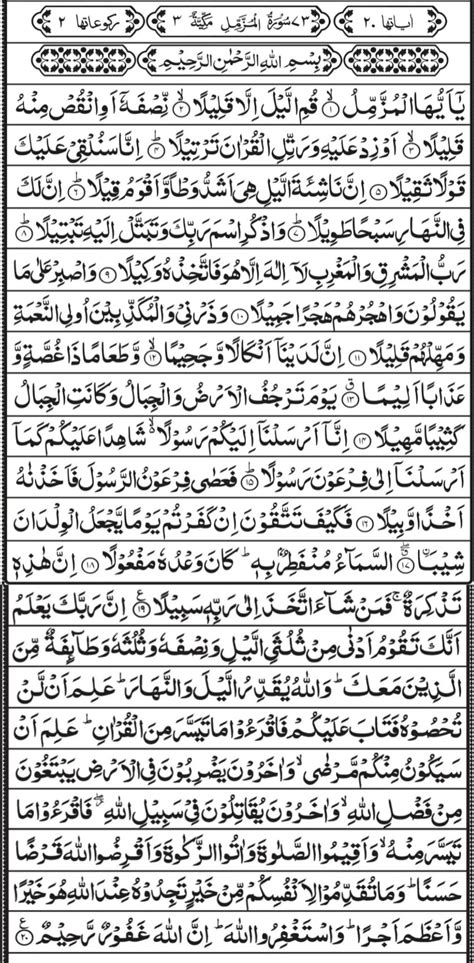 اٰیاتها ٢٠ ٧٣ سُوْرَةُ الْمُزَّمِّلِ مَكِّیَّةٌ ٣ رکوعاتها ٢
بِسْمِ اللهِ الرَّحْمٰنِ الرَّحِیْمِ
یٰۤاَیُّهَا الْمُزَّمِّلُ ۙ﴿۱﴾ قُمِ الَّیْلَ اِلَّا قَلِیْلًا ۙ﴿۲﴾ نِّصْفَهٗۤ اَوِ انْقُصْ مِنْهُ
قَلِیْلًا ۙ﴿۳﴾ اَوْ زِدْ عَلَیْهِ وَ رَتِّلِ الْقُرْاٰنَ تَرْتِیْلًا ؕ﴿۴﴾ اِنَّا سَنُلْقِیْ عَلَیْكَ
قَوْلًا ثَقِیْلًا ﴿۵﴾ اِنَّ نَاشِئَةَ الَّیْلِ هِیَ اَشَدُّ وَطْاً وَّ اَقْوَمُ قِیْلًا ؕ﴿۶﴾ اِنَّ لَكَ
فِی النَّهَارِ سَبْحًا طَوِیْلًا ؕ﴿۷﴾ وَ اذْكُرِ اسْمَ رَبِّكَ وَ تَبَتَّلْ اِلَیْهِ تَبْتِیْلًا ؕ﴿۸﴾
رَبُّ الْمَشْرِقِ وَ الْمَغْرِبِ لَاۤ اِلٰهَ اِلَّا هُوَ فَاتَّخِذْهُ وَكِیْلًا ﴿۹﴾ وَ اصْبِرْ عَلٰی مَا
یَقُوْلُوْنَ وَ اهْجُرْهُمْ هَجْرًا جَمِیْلًا ﴿۱۰﴾ وَ ذَرْنِیْ وَ الْمُكَذِّبِیْنَ اُولِی النَّعْمَةِ
وَ مَهِّلْهُمْ قَلِیْلًا ﴿۱۱﴾ اِنَّ لَدَیْنَاۤ اَنْكَالًا وَّ جَحِیْمًا ۙ﴿۱۲﴾ وَّ طَعَامًا ذَا غُصَّةٍ وَّ
عَذَابًا اَلِیْمًا ۗ﴿۱۳﴾ یَوْمَ تَرْجُفُ الْاَرْضُ وَ الْجِبَالُ وَ كَانَتِ الْجِبَالُ
كَثِیْبًا مَّهِیْلًا ﴿۱۴﴾ اِنَّاۤ اَرْسَلْنَاۤ اِلَیْكُمْ رَسُوْلًا ۙ۬ شَاهِدًا عَلَیْكُمْ كَمَاۤ
اَرْسَلْنَاۤ اِلٰی فِرْعَوْنَ رَسُوْلًا ؕ﴿۱۵﴾ فَعَصٰی فِرْعَوْنُ الرَّسُوْلَ فَاَخَذْنٰهُ
اَخْذًا وَّبِیْلًا ﴿۱۶﴾ فَكَیْفَ تَتَّقُوْنَ اِنْ كَفَرْتُمْ یَوْمًا یَّجْعَلُ الْوِلْدَانَ
شِیْبَا ۗۖ﴿۱۷﴾ السَّمَآءُ مُنْفَطِرٌۢ بِهٖ ؕ كَانَ وَعْدُهٗ مَفْعُوْلًا ﴿۱۸﴾ اِنَّ هٰذِهٖ
تَذْكِرَةٌ ۚ فَمَنْ شَآءَ اتَّخَذَ اِلٰی رَبِّهٖ سَبِیْلًا ﴿۱۹﴾ اِنَّ رَبَّكَ یَعْلَمُ
اَنَّكَ تَقُوْمُ اَدْنٰی مِنْ ثُلُثَیِ الَّیْلِ وَ نِصْفَهٗ وَ ثُلُثَهٗ وَ طَآئِفَةٌ مِّنَ
الَّذِیْنَ مَعَكَ ؕ وَ اللهُ یُقَدِّرُ الَّیْلَ وَ النَّهَارَ ؕ عَلِمَ اَنْ لَّنْ
تُحْصُوْهُ فَتَابَ عَلَیْكُمْ فَاقْرَءُوْا مَا تَیَسَّرَ مِنَ الْقُرْاٰنِ ؕ عَلِمَ اَنْ
سَیَكُوْنُ مِنْكُمْ مَّرْضٰی ۙ وَ اٰخَرُوْنَ یَضْرِبُوْنَ فِی الْاَرْضِ یَبْتَغُوْنَ
مِنْ فَضْلِ اللهِ ۙ وَ اٰخَرُوْنَ یُقَاتِلُوْنَ فِیْ سَبِیْلِ اللهِ ۖؗ فَاقْرَءُوْا مَا
تَیَسَّرَ مِنْهُ ۙ وَ اَقِیْمُوا الصَّلٰوةَ وَ اٰتُوا الزَّكٰوةَ وَ اَقْرِضُوا اللهَ قَرْضًا
حَسَنًا ؕ وَ مَا تُقَدِّمُوْا لِاَنْفُسِكُمْ مِّنْ خَیْرٍ تَجِدُوْهُ عِنْدَ اللهِ هُوَ خَیْرًا
وَّ اَعْظَمَ اَجْرًا ؕ وَ اسْتَغْفِرُوا اللهَ ؕ اِنَّ اللهَ غَفُوْرٌ رَّحِیْمٌ ﴿۲۰﴾